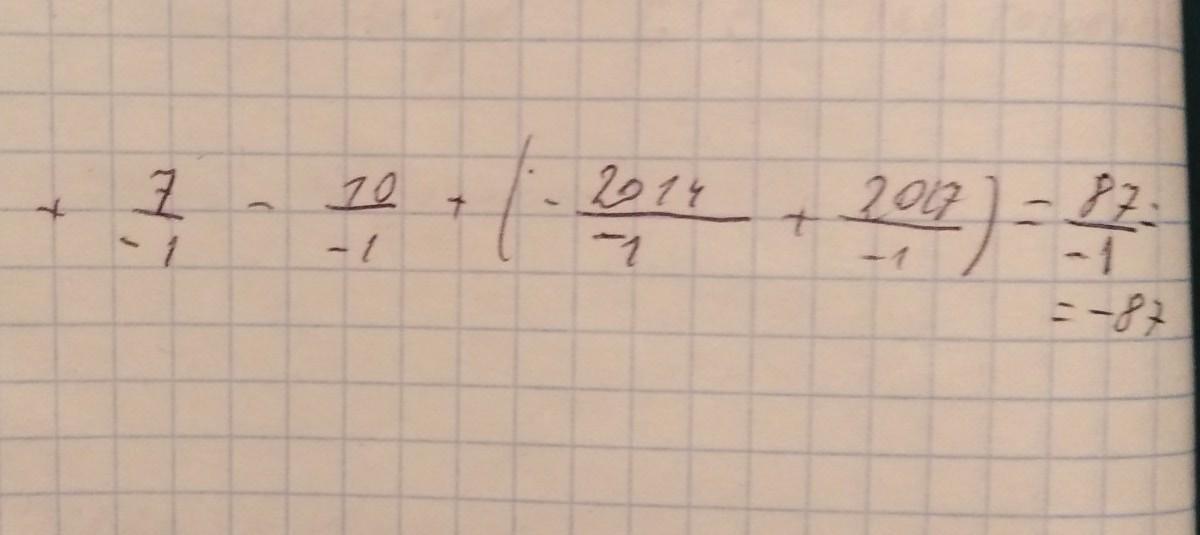 + 7/-1 - 10/-1 + (- 2014/-1 + 2017/-1) = 87/-1 =
= -87